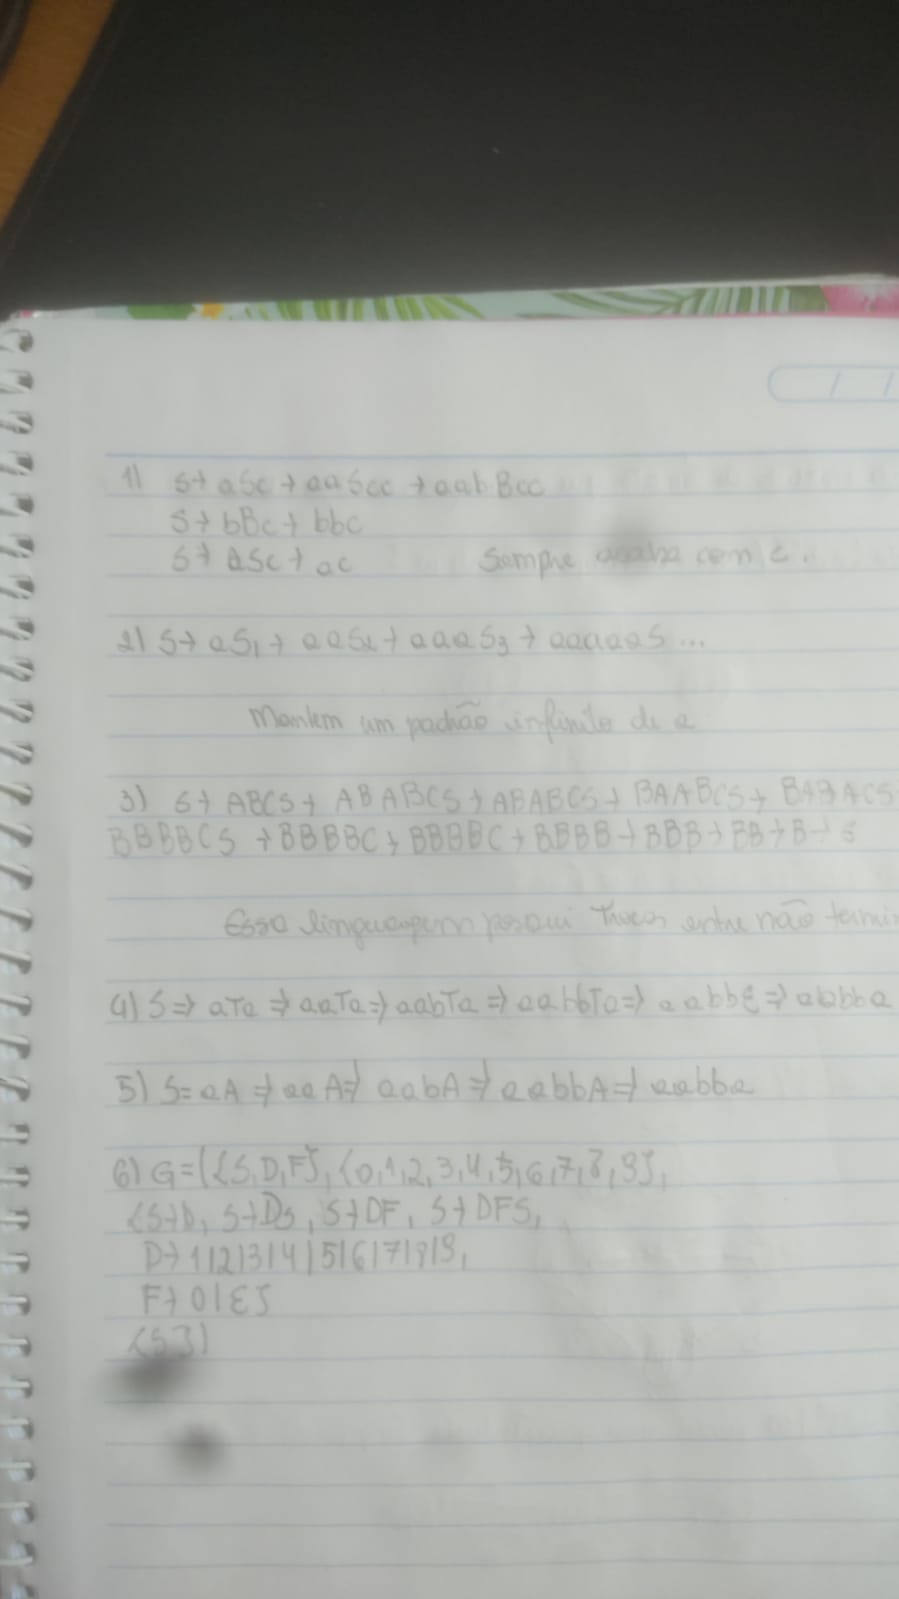 1) S→ aSc → aaScc → aabBcc
S→ bBc → bbc
S→ aSc → ac Sempre acaba com c.
2) S→ aS1 → aaS2 → aaaS3 → aaaaaS...
Mantem um padrão infinito de a
3) S→ ABCS → ABABCS → ABABCS → BAABCS → BABACS
BBBBCS → BBBBC → BBBBC → BBBB → BBB → BB → B → ε
Essa linguagem possui Trocas entre não termi
4) S ⇒ aTa ⇒ aaTa ⇒ aabTa ⇒ aabbTa ⇒ aabbε ⇒ abbba
5) S= aA ⇒ aaA ⇒ aabA ⇒ aabbA ⇒ aabba
6) G=({S,D,F}, {0,1,2,3,4,5,6,7,8,9},
{S→D, S→DS, S→DF, S→DFS,
D→ 1|2|3|4|5|6|7|8|9,
F→ 0|ε}
{S})